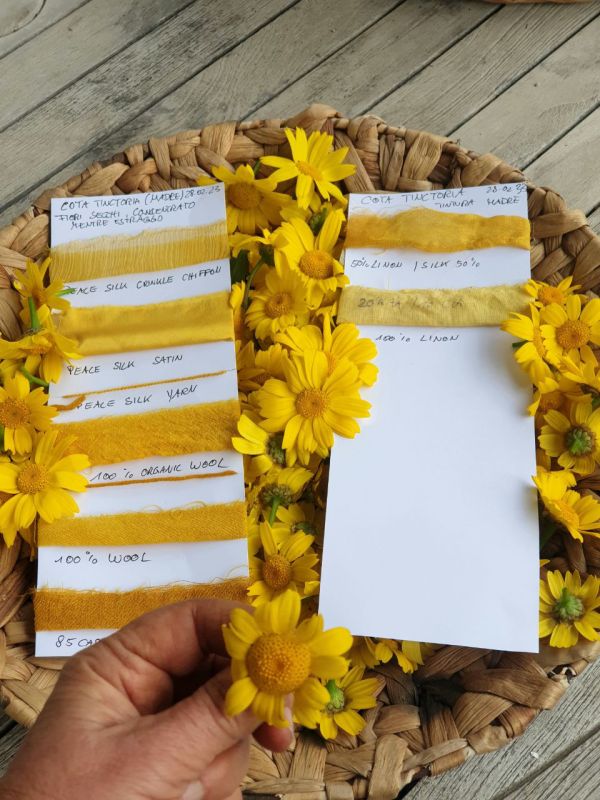 COTA TINCTORIA (MADRE) 28.02.23
FIORI SECCHI, CONCENTRATO
MENTRE ESTRAGGO
PEACE SILK CRINKLE CHIFFON
PEACE SILK SATIN
PEACE SILK YARN
100% ORGANIC WOOL
100% WOOL
85
COTA TINCTORIA 28.02.23
TINTURA MADRE
50% LINON / SILK 50%
100% LINON